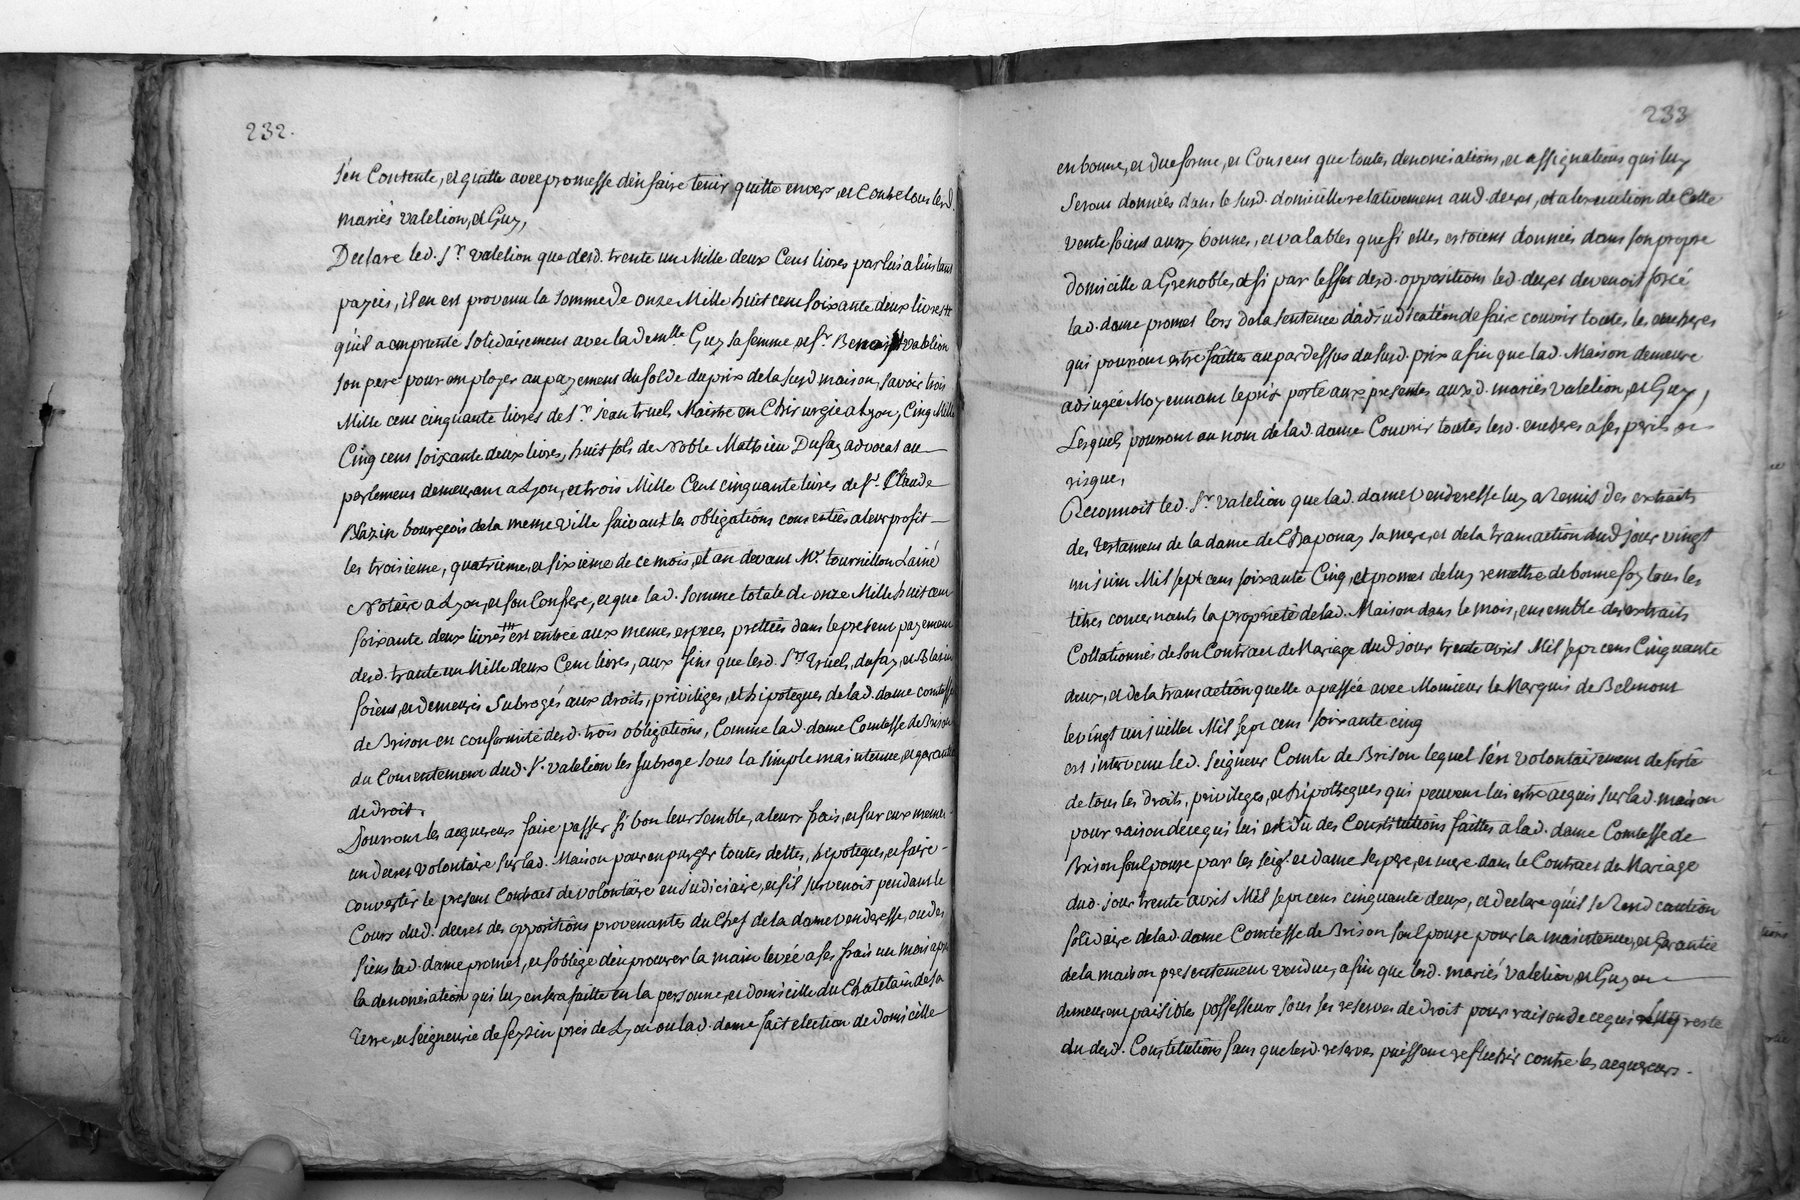 232.
s'en Contente, et quitte avec promesse d'en faire tenir quitte envers, et Contre tous lesd.
mariés valelion, et Guy,
Declare led. Sr. valelion que desd. trente un Mille deux Cent livres par lui a l'instant
payées, il en est provenu la somme de onze Mille huit cent soixante deux livres
qu'il a emprunté solidairement avec lad. demlle. Guy sa femme et sr. Benoist valelion
son pere pour employer au payement du solde du prix de la susd. maison, savoir trois
Mille cent cinquante livres de Sr. jean truel Maistre en Chirurgie a Lyon, Cinq Mille
Cinq cent soixante deux livres, huit sols de Noble Mathieu Dufay advocat au
parlement demeurant a Lyon, et trois Mille Cent cinquante livres de Sr. Claude
Blazin bourgeois de la meme ville suivant les obligations consenties a leur profit
les troisieme, quatrieme, et sixieme de ce mois, et an devant Me. tournillon L'ainé
Notaire a Lyon, et son Confrere, et que lad. somme totale de onze Mille huit cent
soixante deux livres est entrée aux memes especes prettées dans le present payement
desd. trante un Mille deux Cent livres, aux fins que lesd. Srs. truel, dufay, et Blazin
soient, et demeurés Subrogés aux droits, privileges, et hipoteques de lad. dame comtesse
de Brison en conformité desd. trois obligations, Comme lad. dame Comtesse de Brison
du Consentement dud. Sr. valelion les subroge sous la simple maintenue, et garantie
de droit.
Pourront les acquereurs faire passer si bon leur semble, a leurs frais, et sur eux meme
un decret volontaire sur lad. Maison pour en purger toutes dettes, hipoteques, et faire
convertir le present Contract de volontaire en judiciaire, et s'il survenoit pendant le
Cours dud. decret des oppositions provenantes du Chef de la dame venderesse, ou des
siens lad. dame promet, et s'oblige d'en procurer la main levée a ses frais un mois après
la denonciation qui luy en sera faitte en la personne, et domicille du Chatelain de sa
Terre, et seigneurie de feyzin prés de Lyon ou lad. dame fait election de domicille
233
en bonne, et due forme, et Consent que toutes denonciations, et assignations qui luy
seront données dans le susd. domicille relativement aud. decret, et a l'execution de Cette
vente soient aussy bonnes, et valables que si elles estoient données dans son propre
domicille a Grenoble, et si par l'effet desd. oppositions led. decret devenoit forcé
lad. dame promet lors de la sentence d'adjudication de faire couvrir toutes les encheres
qui pourront estre faittes au par dessus du susd. prix afin que lad. Maison demeure
adjugée Moyennant le prix porté aux presentes auxd. mariés valelion, et Guy,
Lesquels pourront au nom de lad. dame Couvrir toutes lesd. encheres a ses perils et
risque,
Reconnoit led. Sr. valelion que lad. dame venderesse luy a Remis des extraits
des Testament de la dame de Chaponay sa mere, et de la transaction dud jour vingt
un juin Mil sept cent soixante Cinq, et promet de luy remettre de bonne foy tous les
titres concernants la proprieté de lad. Maison dans le mois, ensemble des extraits
Collationnés de son Contract de Mariage dud jour trente avril Mil sept cent Cinquante
deux, et de la transaction quelle a passée avec Monsieur le Marquis de Belmont
le vingt un juillet Mil sept cent soixante cinq
est intervenu led. Seigneur Comte de Brison lequel s'est volontairement desisté
de tous les droits, privileges, et hipotheques qui peuvent lui estre acquis sur lad. maison
pour raison de ce qui lui est dû des Constitutions faittes a lad. dame Comtesse de
Brison son Epouse par les seigr. et dame ses pere, et mere dans le Contract de Mariage
dud. jour trente avril Mil sept cent cinquante deux, et declare qu'il se Rend caution
solidaire de lad. dame Comtesse de Brison son Epouse pour la maintenue, et Garantie
de la maison presentement vendue, afin que lesd. mariés valelion et Guy en
demeurent paisibles possesseurs sous les reserves de droit pour raison de ce qui reste
du desd. Constitutions sans que lesd. reserves puissent reflechir contre les acquereurs.